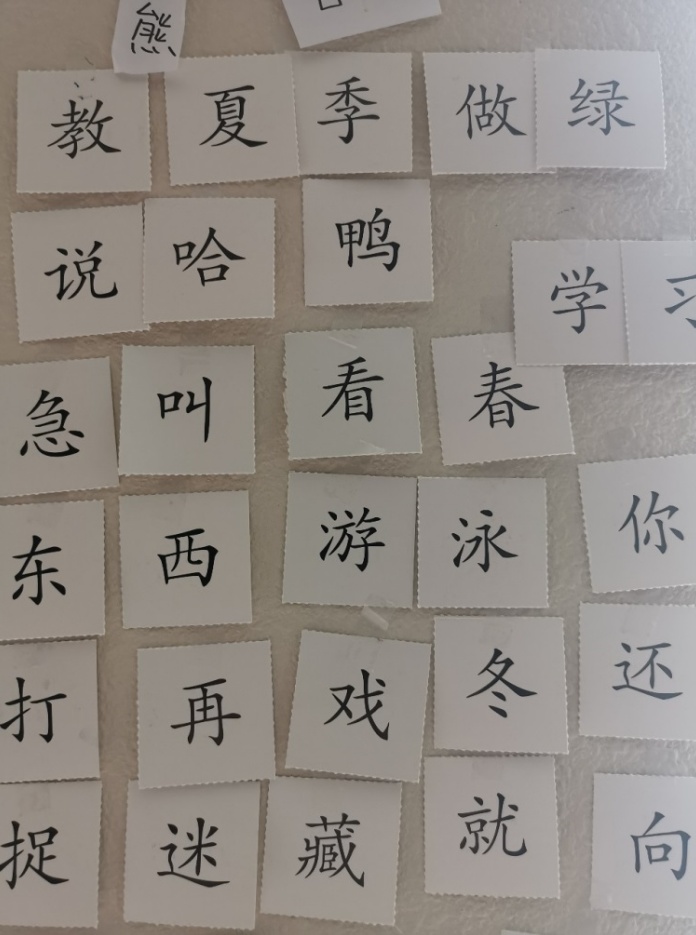 熊
教 夏 季 做 绿
说 哈 鸭
学 习
急 叫 看 春
东 西 游 泳 你
打 再 戏 冬 还
捉 迷 藏 就 向